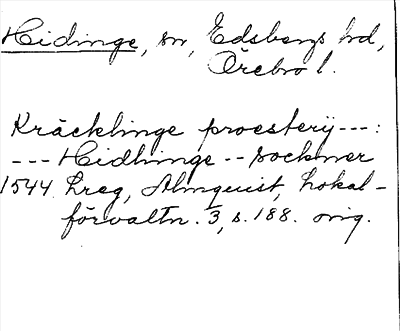 Hidinge, sn, Edsbergs hd,
Örebro l.
Kräcklinge proesterij---:
--- Hidhinge -- sockner
1544 Lreg, Almquist, Lokal-
förvaltn. 3, s. 188. orig.